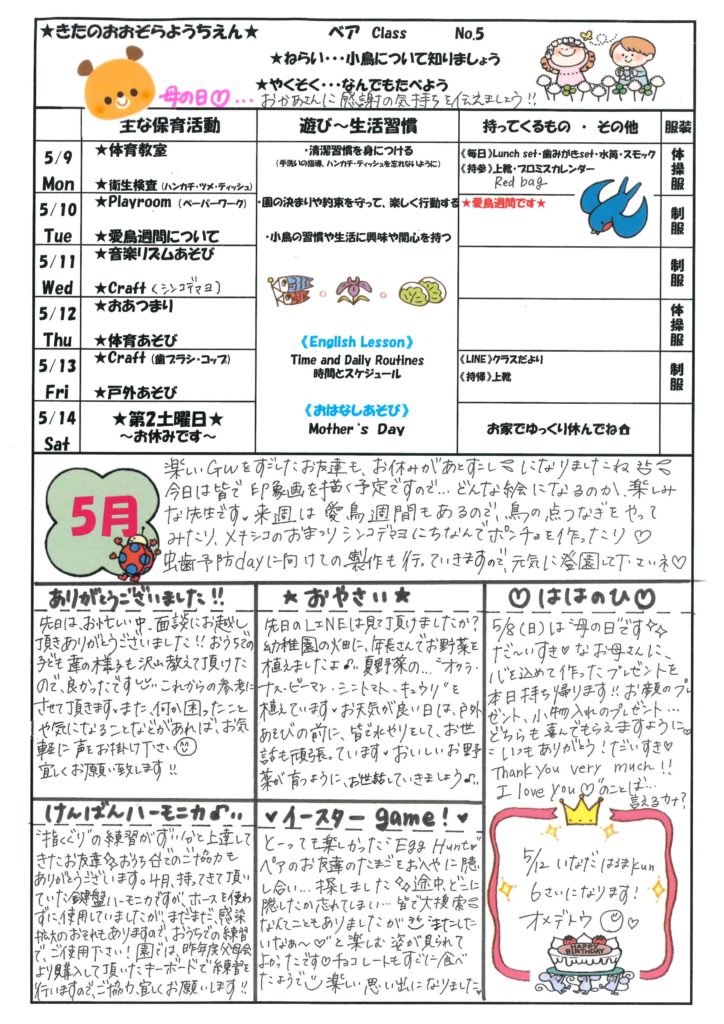 ★きたのおおぞらようちえん★
ベア Class No.5
★ねらい・・・小鳥について知りましょう
★やくそく・・・なんでもたべよう
母の日♡・・・おかあさんに感謝の気持ちを伝えましょう!!
主な保育活動 遊び～生活習慣 持ってくるもの ・ その他 服装
5/9 Mon
★体育教室
★衛生検査（ハンカチ・ツメ・ティッシュ）
・清潔習慣を身につける
（手洗いの指導、ハンカチ・ティッシュを忘れないように）
《毎日》Lunch set・歯みがきset・水筒・スモック
《持参》上靴・プロミスカレンダー
Red bag
体操服
5/10 Tue
★Playroom（ペーパーワーク）
★愛鳥週間について
・園の決まりや約束を守って、楽しく行動する
・小鳥の習慣や生活に興味や関心を持つ
★愛鳥週間です★
制服
5/11 Wed
★音楽リズムあそび
★Craft（シンコデマヨ）
制服
5/12 Thu
★おあつまり
★体育あそび
体操服
《English Lesson》
Time and Daily Routines
時間とスケジュール
5/13 Fri
★Craft（歯ブラシ・コップ）
★戸外あそび
《LINE》クラスだより
《持帰》上靴
制服
《おはなしあそび》
Mother's Day
5/14 Sat
★第2土曜日★
～お休みです～
お家でゆっくり休んでね
5月
楽しいGWをすごしたお友達も、お休みがあとすこしになりましたね
今日は皆で印象画を描く予定ですので…どんな絵になるのか、楽しみ
な先生です♥来週は愛鳥週間もあるので、鳥の点つなぎをやって
みたり、メキシコのおまつりシンコデマヨにちなんでポンチョを作ったり♡
虫歯予防dayに向けての製作も行っていきますので、元気に登園して下さいネ♡
ありがとうございました!!
先日は、お忙しい中、面談にお越し
頂きありがとうございました!!おうちでの
子ども達の様子も沢山教えて頂けた
ので、良かったです これからの参考に
させて頂きます。また、何か困ったこと
や気になることなどがあれば、お気
軽に声をお掛け下さい
宜しくお願い致します!!
★おやさい★
先日のLINEは見て頂けましたか?
幼稚園の畑に、年長さんでお野菜を
植えましたよ♪夏野菜の…"オクラ・
ナス・ピーマン・ミニトマト・キュウリ"を
植えています♥お天気が良い日は、戸外
あそびの前に、皆で水やりをして、お世
話も頑張っています♥おいしいお野
菜が育つように、お世話していきましょう♪
♡ははのひ♡
5/8(日)は"母の日"です
だ〜いすき♥なお母さんに、
心を込めて作ったプレゼントを
本日持ち帰ります!!お顔のプレ
ゼント、小物入れのプレゼント…
どちらも喜んでもらえますように♡
"いつもありがとう!だいすき♥
Thank you very much!!
I love you♡"のことば…
言えるカナ?
けんばんハーモニカ♪
"指くぐり"の練習がず〜っと上達して
きたお友達☆おうちでのご協力も
ありがとうございます。4月、持ってきて頂い
ていた鍵盤ハーモニカですが、ホースを使わ
ずに使用していましたが、まだまだ、感染
拡大のおそれもありますので、おうちでの練習
で、ご使用下さい!園では、昨年度父母会
より購入して頂いたキーボードで練習を
行いますので、ご協力、宜しくお願いします!!
♥イースターgame!♥
とっても楽しかったEgg Hunt♥
ベアのお友達のたまごをお部屋に隠
し合い…探しました 途中、どこに
隠したか忘れてしまい…皆で大捜索
なんてこともありましたが "またした
いなぁ〜♡"と楽しむ姿が見られて
よかったです♡チョコレートもすぐに食べ
たようで 楽しい思い出になりました♥
5/12 いなだ はるまkun
6さいになります!
オメデトウ
HAPPY
BIRTHDAY